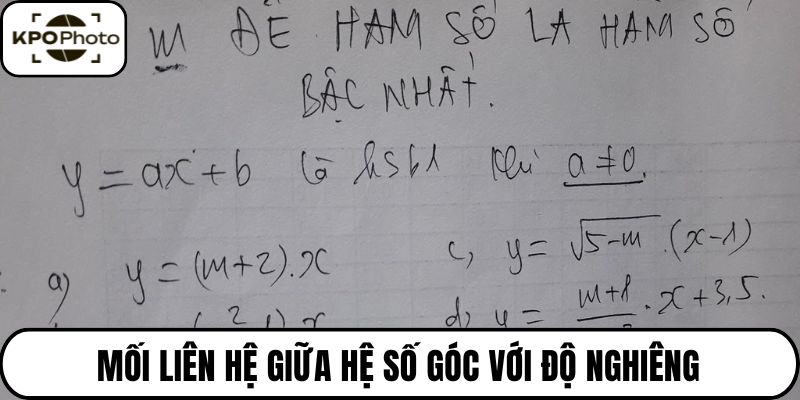 KPOPhoto
m ĐỂ HÀM SỐ LÀ HÀM SỐ
BẬC NHẤT.
y = ax + b là hsb1 khi a ≠ 0.
a) y = (m+2).x
c, y = √5-m .(x-1)
d, y = m+1 . x + 3,5.
MỐI LIÊN HỆ GIỮA HỆ SỐ GÓC VỚI ĐỘ NGHIÊNG